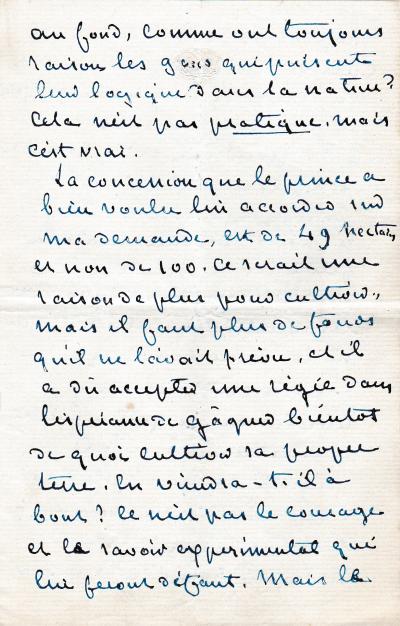 au fond, comme ont toujours
raison les gens qui puisent
leur logique dans la nature ?
Cela n'est pas pratique, mais
c'est vrai.
La concession que le prince a
bien voulu lui accorder sur
ma demande, est de 49 hectares
et non de 100. Ce serait une
raison de plus pour cultiver,
mais il faut plus de fonds
qu'il ne l'avait prévu, et il
a dû accepter une régie dans
l'espérance de gâgner bientôt
de quoi cultiver sa propre
terre. En viendra-t-il à
bout ? Ce n'est pas le courage
et le savoir expérimental qui
lui feront défaut. Mais la